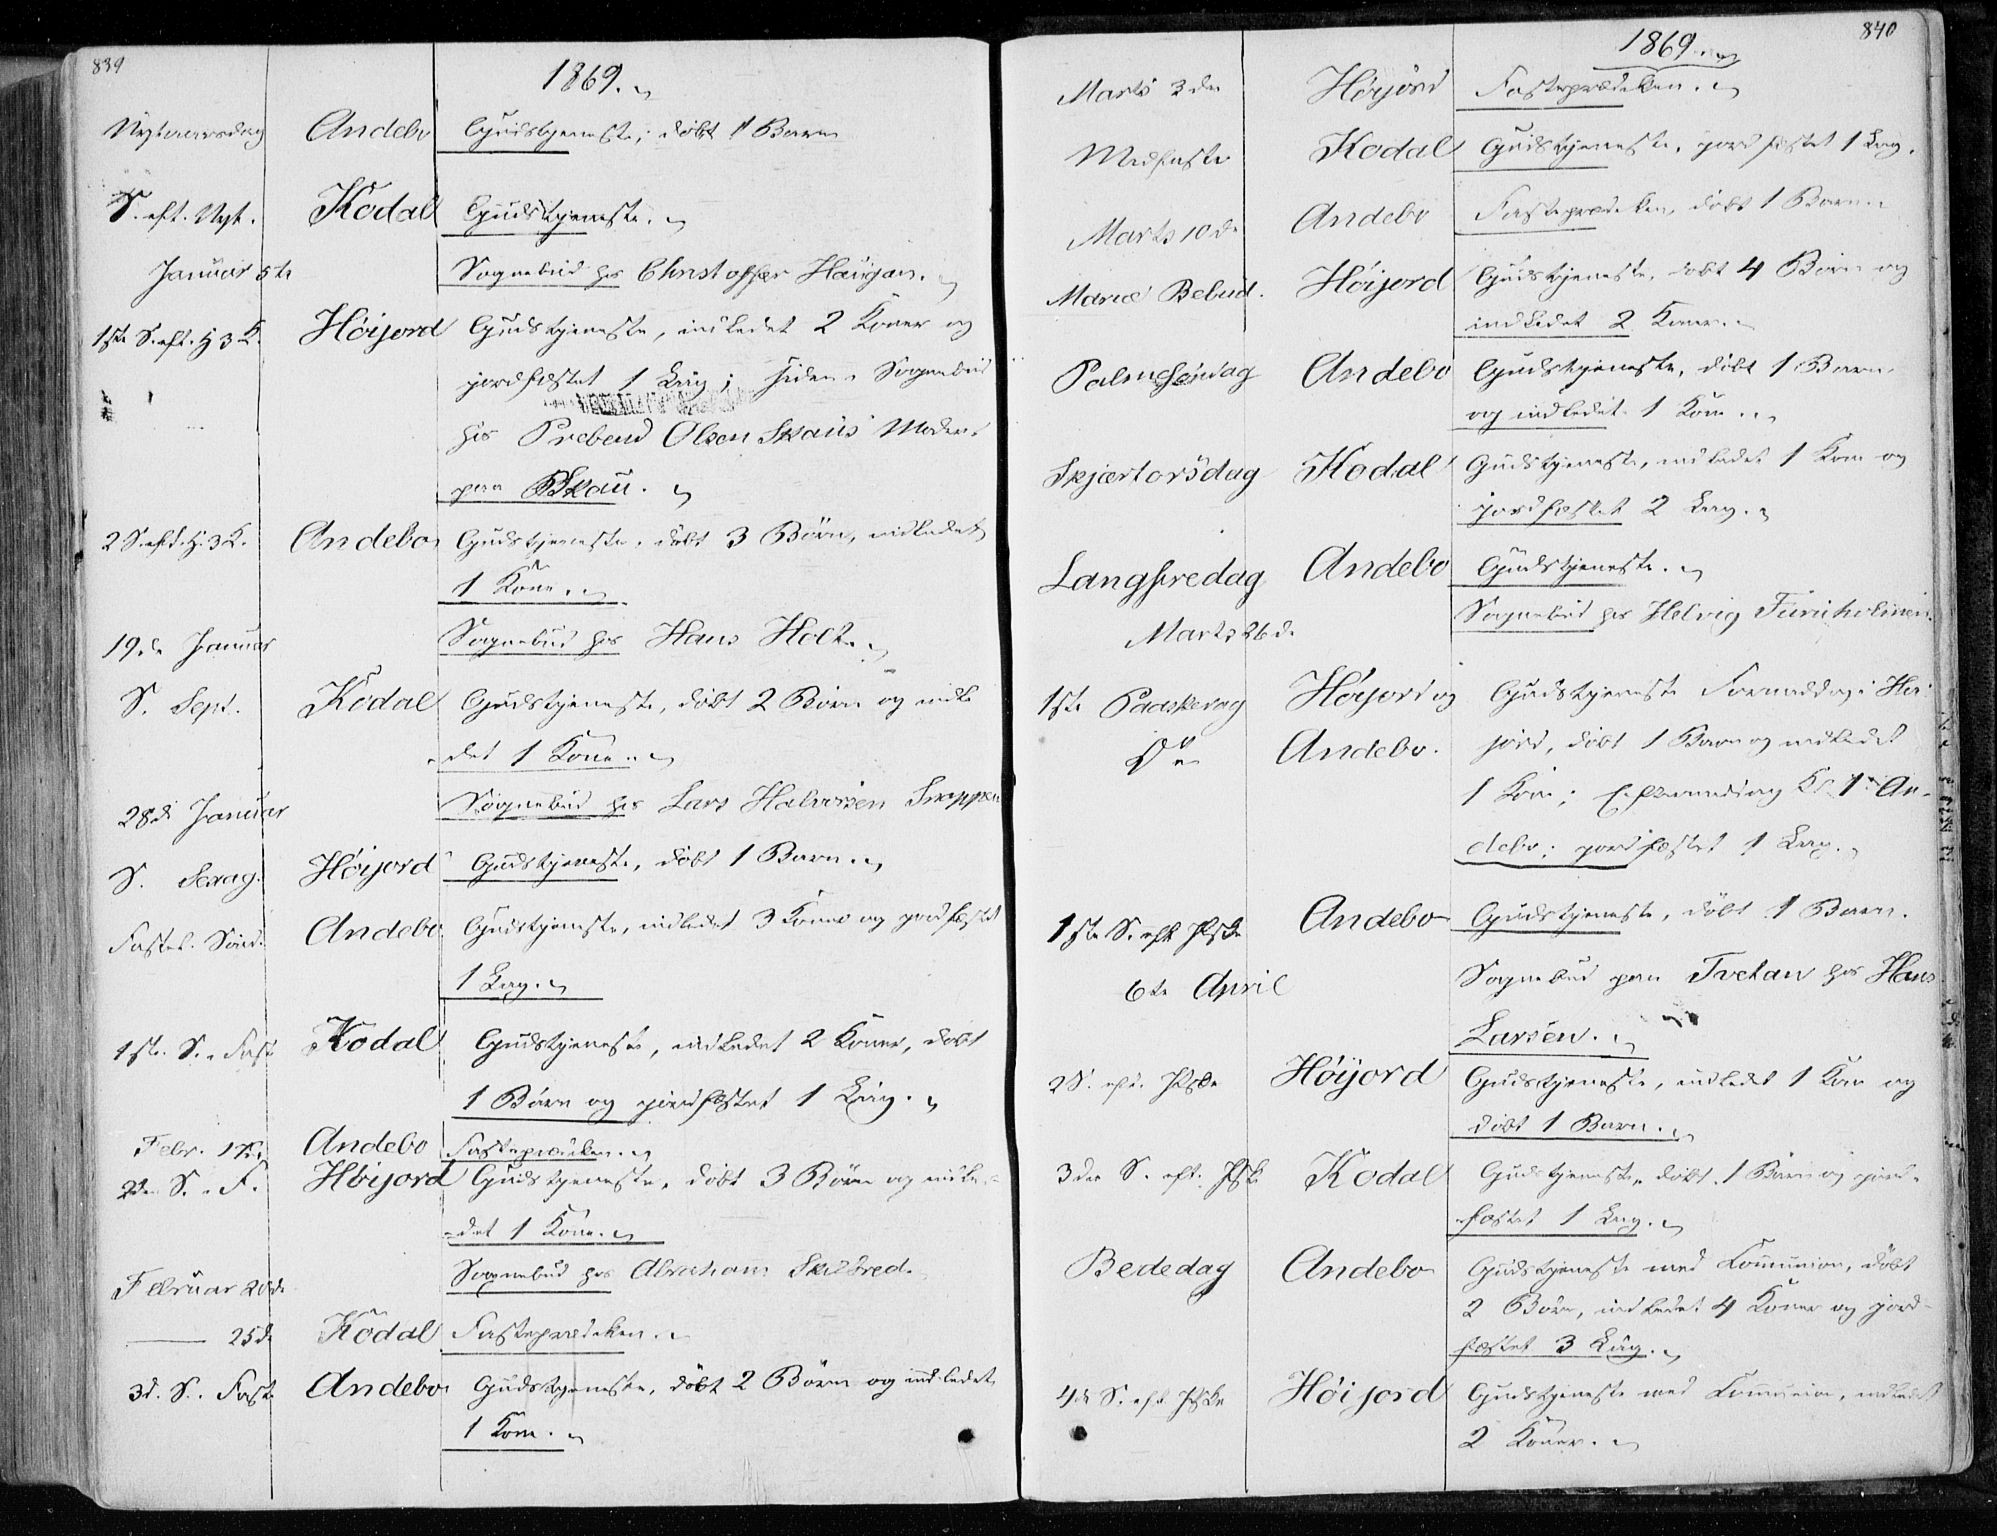 839
1869.
Nytaarsdag Andebo Gudstjeneste; døbt 1 Barn
S. eft. Nyt. Kodal Gudstjeneste.
Januar 5te Sognebud hos Christoffer Haugan.
1ste S. eft. H 3 K. Höijord Gudstjeneste, indledet 2 Koner og
jordfæstet 1 Liig; siden Sognebud
hos Prebend Olsen Skaus Moder
paa Skau.
2 S. eft. H. 3 K. Andebo Gudstjeneste, døbt 3 Börn, indledet
1 Kone.
19de Januar Sognebud hos Hans Holt.
S. Sept. Kodal Gudstjeneste, døbt 2 Börn og indle
det 1 Kone.
28de Januar Sognebud hos Lars Halvorsen Snappen
S. Sexag. Höijord Gudstjeneste, døbt 1 Barn.
Fastel. Sönd. Andebo Gudstjeneste, indledet 3 Koner og jordfæstet
1 Liig.
1ste S. i Fast Kodal Gudstjeneste, indledet 2 Koner, døbt
1 Börn og jordfæstet 1 Liig.
Febr. Andebo Fasteprædiken.
2den S. i F. Höijord Gudstjeneste, døbt 3 Börn og indle-
det 1 Kone.
Februar 20de Sognebud hos Abraham Skilbred.
25de Kodal Fasteprædiken.
3d. S. i Fast Andebo Gudstjeneste, döbt 2 Börn og indledet
1 Kone.
840
1869.
Marts 3die Höijord Fasteprædiken.
Midfaste Kodal Gudstjeneste, jordfæstet 1 Liig.
Marts 10de Andebo Fasteprædiken, døbt 1 Barn.
Mariæ Bebud. Höijord Gudstjeneste, døbt 4 Börn og
indledet 2 Koner.
Palmesöndag Andebo Gudstjeneste, döbt 1 Barn
og indledet 1 Kone.
Skjærtorsdag Kodal Gudstjeneste, indledet 1 Kone og
jordfæstet 2 Liig.
Langfredag Andebo Gudstjeneste.
Marts 26de Sognebud hos Helvig
1ste Paaskedag Höijord og Gudstjeneste Formiddag i Höi-
Do Andebo. jord, döbt 1 Barn og indledet
1 Kone; Eftermiddag Kl. 1 i An-
debo; jordfæstet 1 Liig.
1ste S. eft Pske Andebo Gudstjeneste, döbt 1 Barn.
6te April Sognebud paa Tvetan hos Hans
Larsen.
2 S. eft. Pske Höijord Gudstjeneste, indledet 1 Kone og
döbt 1 Barn.
3die S. eft. Pske Kodal Gudstjeneste, döbt 1 Barn og jord-
fæstet 1 Liig.
Bededag Andebo Gudstjeneste med Communion, döbt
2 Börn, indledet 4 Koner og jord-
fæstet 3 Liig.
4de S. eft Pske Höijord Gudstjeneste med Communion, indledet
2 Koner.